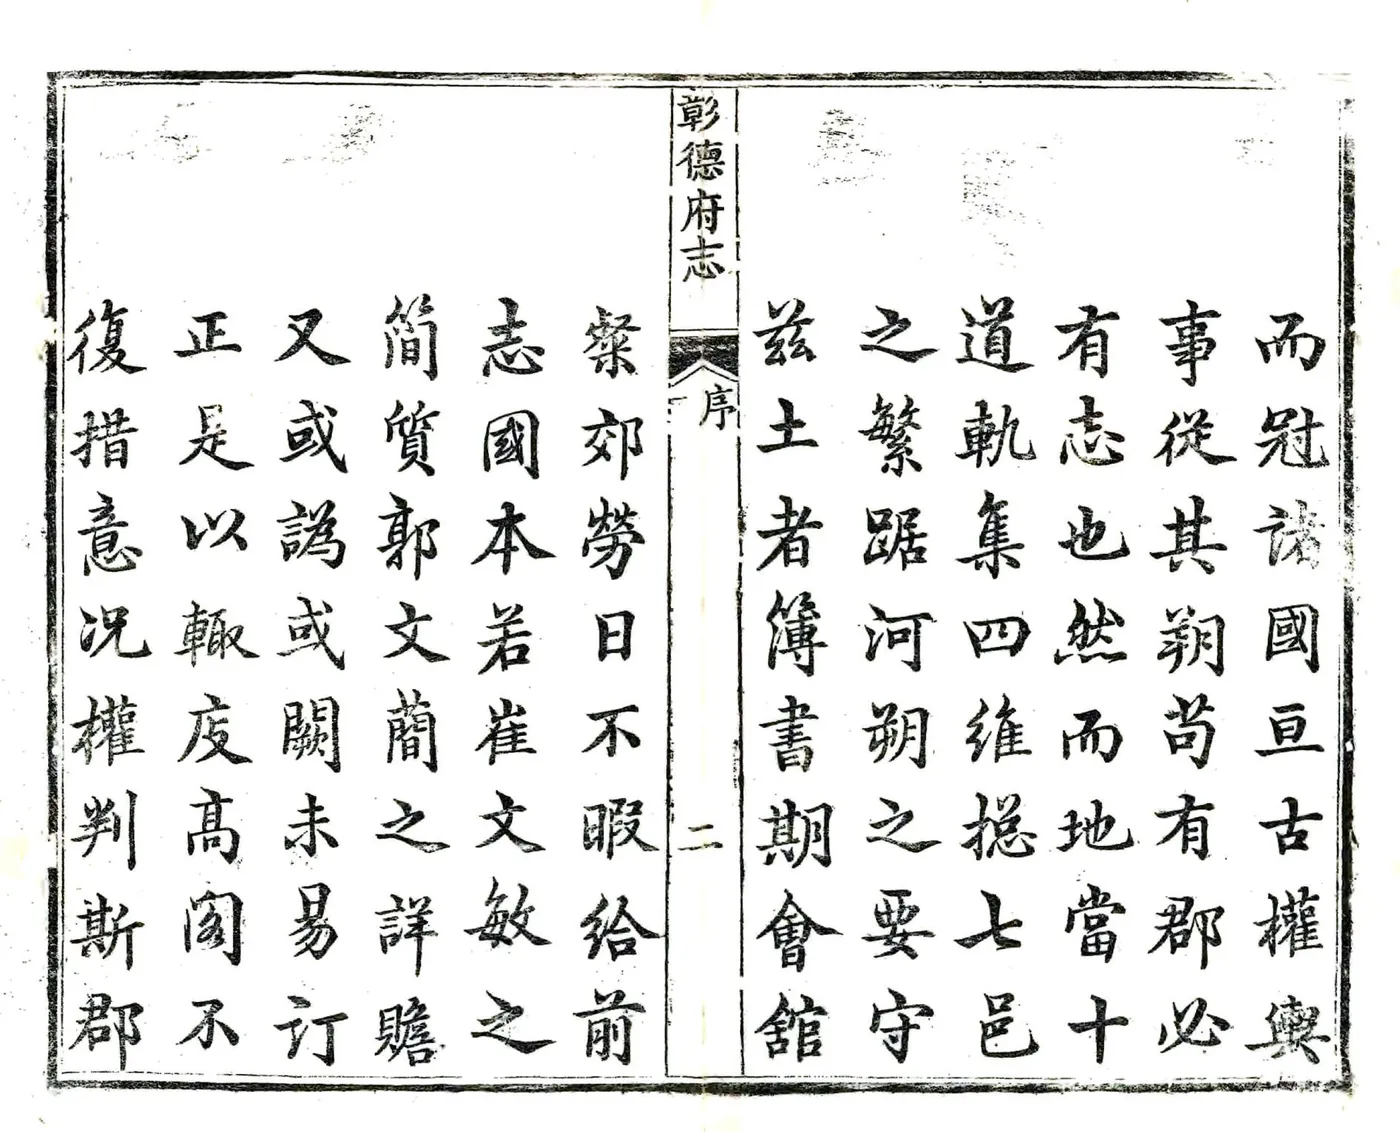 而冠諸國亘古權輿
事從其朔苟有郡必
有志也然而地當十
道軌集四維摠七邑
之繁踞河朔之要守
兹土者簿書期會舘
彰德府志
序
二
粲郊勞日不暇給前
志國本若崔文敏之
簡質郭文蕳之詳贍
又或譌或闕未易訂
正是以輙庋高閣不
復措意况權判斯郡